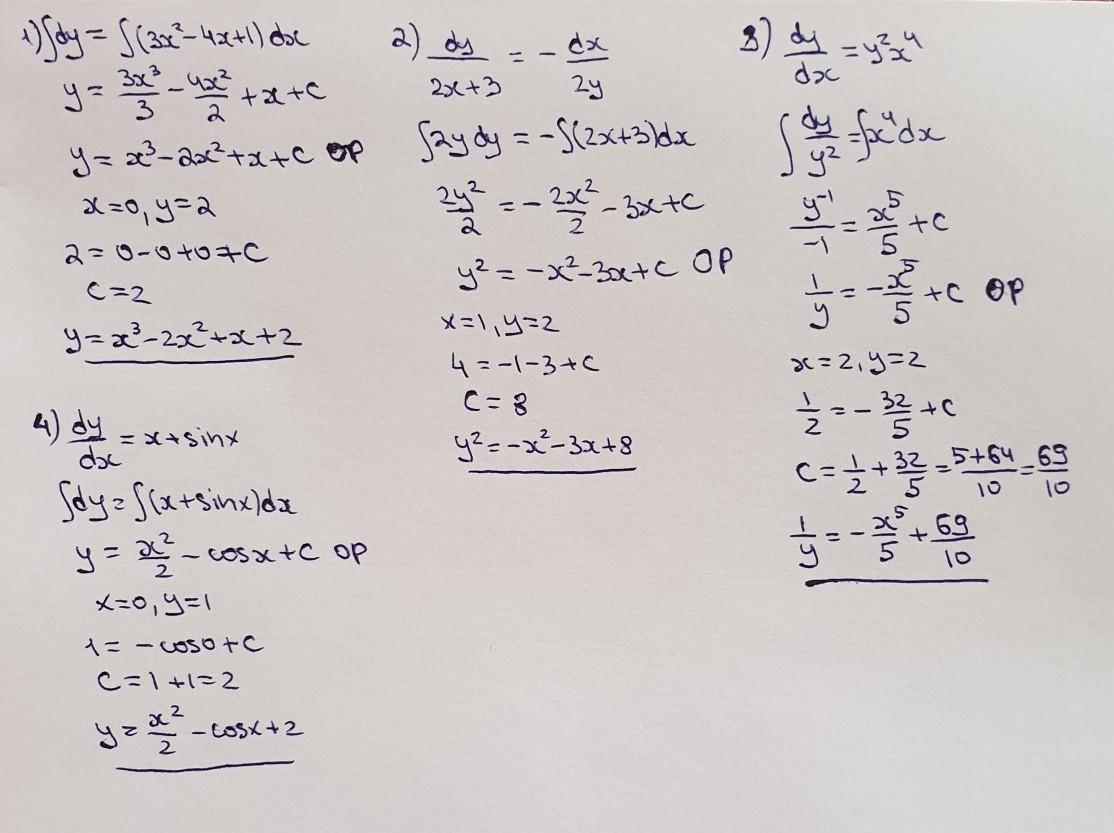 1) ∫dy = ∫(3x²-4x+1)dx
y = 3x³/3 - 4x²/2 + x + C
y = x³ - 2x² + x + C OP
x=0, y=2
2 = 0-0+0+C
C=2
y = x³-2x²+x+2
2) dy/(2x+3) = - dx/(2y)
∫2y dy = -∫(2x+3)dx
2y²/2 = - 2x²/2 - 3x + C
y² = -x²-3x+C OP
x=1, y=2
4 = -1-3+C
C = 8
y² = -x²-3x+8
3) dy/dx = y²x⁴
∫ dy/y² = ∫x⁴dx
y⁻¹/-1 = x⁵/5 + C
1/y = -x⁵/5 + C OP
x=2, y=2
1/2 = - 32/5 + C
C = 1/2 + 32/5 = (5+64)/10 = 69/10
1/y = - x⁵/5 + 69/10
4) dy/dx = x+sinx
∫dy = ∫(x+sinx)dx
y = x²/2 - cosx + C OP
x=0, y=1
1 = -cos0+C
C = 1+1=2
y = x²/2 - cosx+2